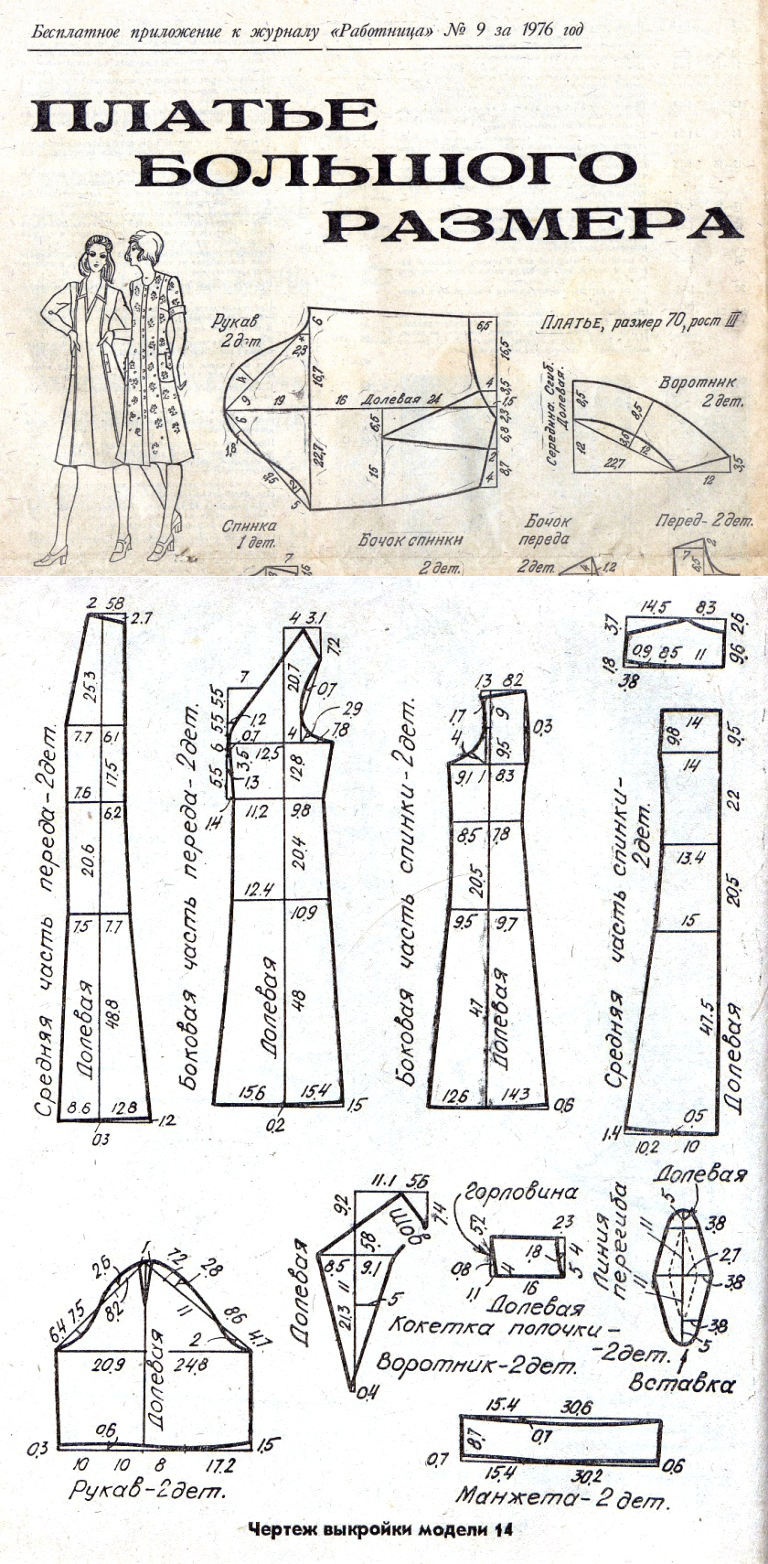 Бесплатное приложение к журналу «Работница» № 9 за 1976 год
ПЛАТЬЕ
БОЛЬШОГО
РАЗМЕРА
Рукав
2 дет
6
2,3
4
9
19
16,7
16
Долевая 24
6,5
16,5
4
3,5
1,5
2,3
6,8
2
8,7
4
6
1,8
22,7
9,5
2
5
6,5
15
ПЛАТЬЕ, размер 70, рост III
Середина. Сгиб.
Долевая.
Воротник
2 дет.
8,5
8,5
12
22,7
12
12
3,5
Спинка
1 дет.
Бочок спинки
2 дет.
Бочок
переда
2 дет.
Перед- 2 дет.
7
1,2
7
8,5
2
Средняя часть переда-2дет.
2 5.8
2.7
25.3
7.7 6.1
17.5
7.6
6.2
20.6
7.5 7.7
Долевая
48.8
8.6 12.8
1.2
0.3
Боковая часть переда-2дет.
4 3.1
7.2
7
20.7
0.7
5.5
5.5
1.2
0.7
2.9
7.8
4
6
3.6
12.5
5.5
1.3
12.8
1.4
11.2 9.8
20.4
12.4
10.9
Долевая
48
15.6 15.4
1.5
0.2
Боковая часть спинки-2дет.
1.3 8.2
1.7
9
0.3
4
9.5
9.1 1 8.3
8.5 7.8
20.5
9.5 9.7
47
Долевая
12.6 14.3
0.6
14.5 8.3
3.7
2.6
0.9 8.5 11
9.6
1.8
3.8
Средняя часть спинки-
2дет.
14
9.8
9.5
14
22
13.4
20.5
15
47.5
Долевая
0.5
1.4
10.2 10
1
2.6
7.2
2.8
7.5
8.2
11
8.6
6.4
2
4.7
20.9 24.8
Долевая
0.6
0.3
1.5
10 10 8 17.2
Рукав-2дет.
11.1 5.6
9.2
7.4
Рот
5.8
8.5
9.1
11
Долевая
21.3
5
0.4
Воротник-2дет.
Горловина
5.2
2.3
1.8
4
0.8
4
5
1.1
16
Долевая
Кокетка полочки-
-2дет.
Линия
перегиба
Долевая
5
3.8
11
2.7
3.8
11
3.8
5
Вставка
15.4 30.6
8.7
0.7
0.7
0.6
15.4 30.2
Манжета-2 дет.
Чертеж выкройки модели 14